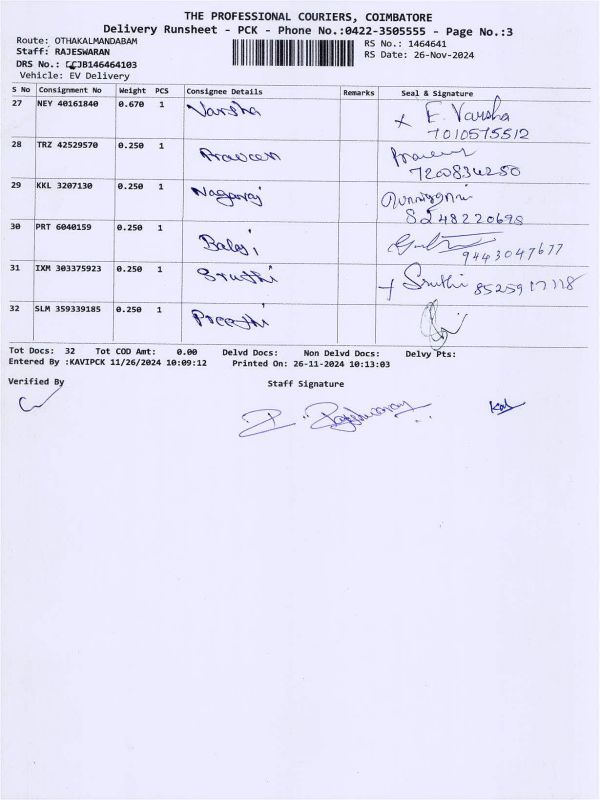 THE PROFESSIONAL COURIERS, COIMBATORE
Delivery Runsheet - PCK - Phone No.:0422-3505555 - Page No.:3
Route: OTHAKALMANDABAM
RS No.: 1464641
Staff: RAJESWARAN
RS Date: 26-Nov-2024
DRS No.: CJB146464103
Vehicle: EV Delivery
S No Consignment No Weight PCS Consignee Details Remarks Seal & Signature
27 NEY 40161840 0.670 1 Varsha x E. Varsha
7010575512
28 TRZ 42529570 0.250 1 Praveen Praveen
7200834250
29 KKL 3207130 0.250 1 Nagaraj
8248220698
30 PRT 6040159 0.250 1 Balaji
9443047677
31 IXM 303375923 0.250 1 Sruthi Sruthi 8525917118
32 SLM 359339185 0.250 1 Preethi
Tot Docs: 32 Tot COD Amt: 0.00 Delvd Docs: Non Delvd Docs: Delvy Pts:
Entered By :KAVIPCK 11/26/2024 10:09:12 Printed On: 26-11-2024 10:13:03
Verified By Staff Signature